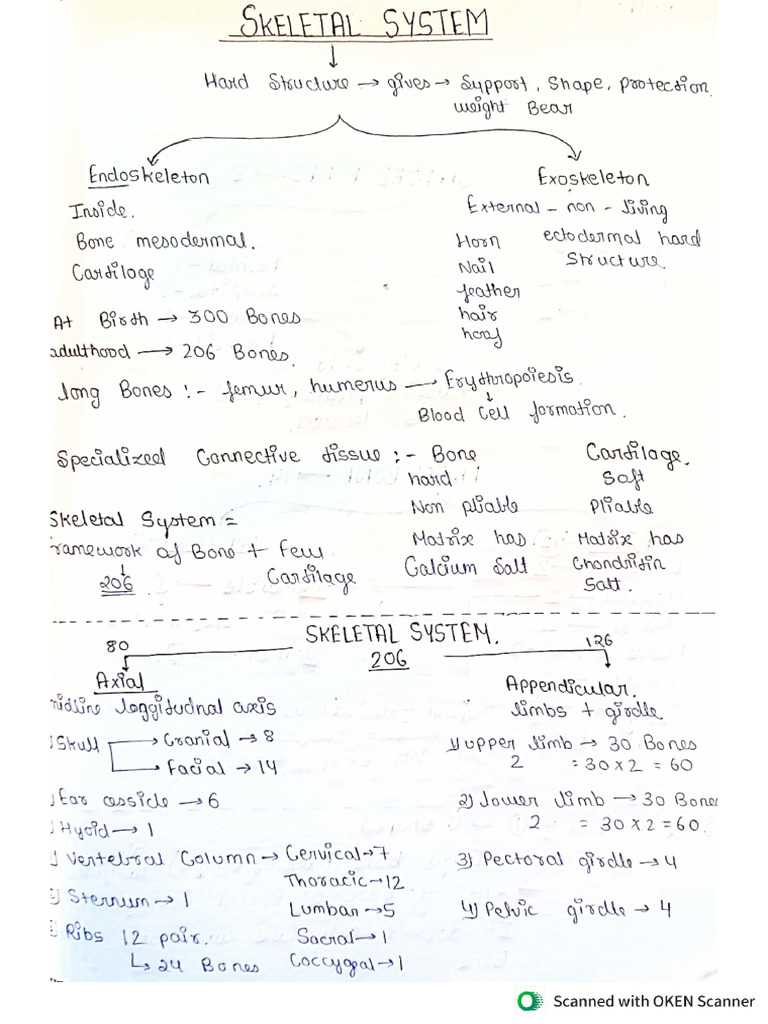 SKELETAL SYSTEM
Hard Structure → gives → Support, Shape, protection
weight Bear
Endoskeleton
Inside.
Bone mesodermal.
Cartilage
Exoskeleton
External - non - living
ectodermal hard
Structure
Horn
Nail
feather
hair
hoof
At Birth → 300 Bones
adulthood → 206 Bones.
long Bones :- femur, humerus → Erythropoiesis.
↓
Blood Cell formation.
Specialized Connective tissue :- Bone
hard
Non pliable
Matrix has
Calcium Salt
Cartilage.
Soft
Pliable
Matrix has
Chondritin
Satt.
Skeletal System =
ramework of Bone + Few
206 Cartilage
SKELETAL SYSTEM.
206
80
Axial
midline loggitudnal axis
Skull → Cranial → 8
→ Facial → 14
Ear osside → 6
Hyoid → 1
Vertebral Column → Cervical → 7
Thoracic → 12
Lumbar → 5
Sacral → 1
Coccygeal → 1
Sternum → 1
Ribs 12 pair.
↳ 24 Bones
126
Appendicular.
limbs + girdle
1) upper limb → 30 Bones
2 = 30 x 2 = 60
2) lower limb → 30 Bones
2 = 30 x 2 = 60.
3) Pectoral girdle → 4
4) Pelvic girdle → 4
Scanned with OKEN Scanner